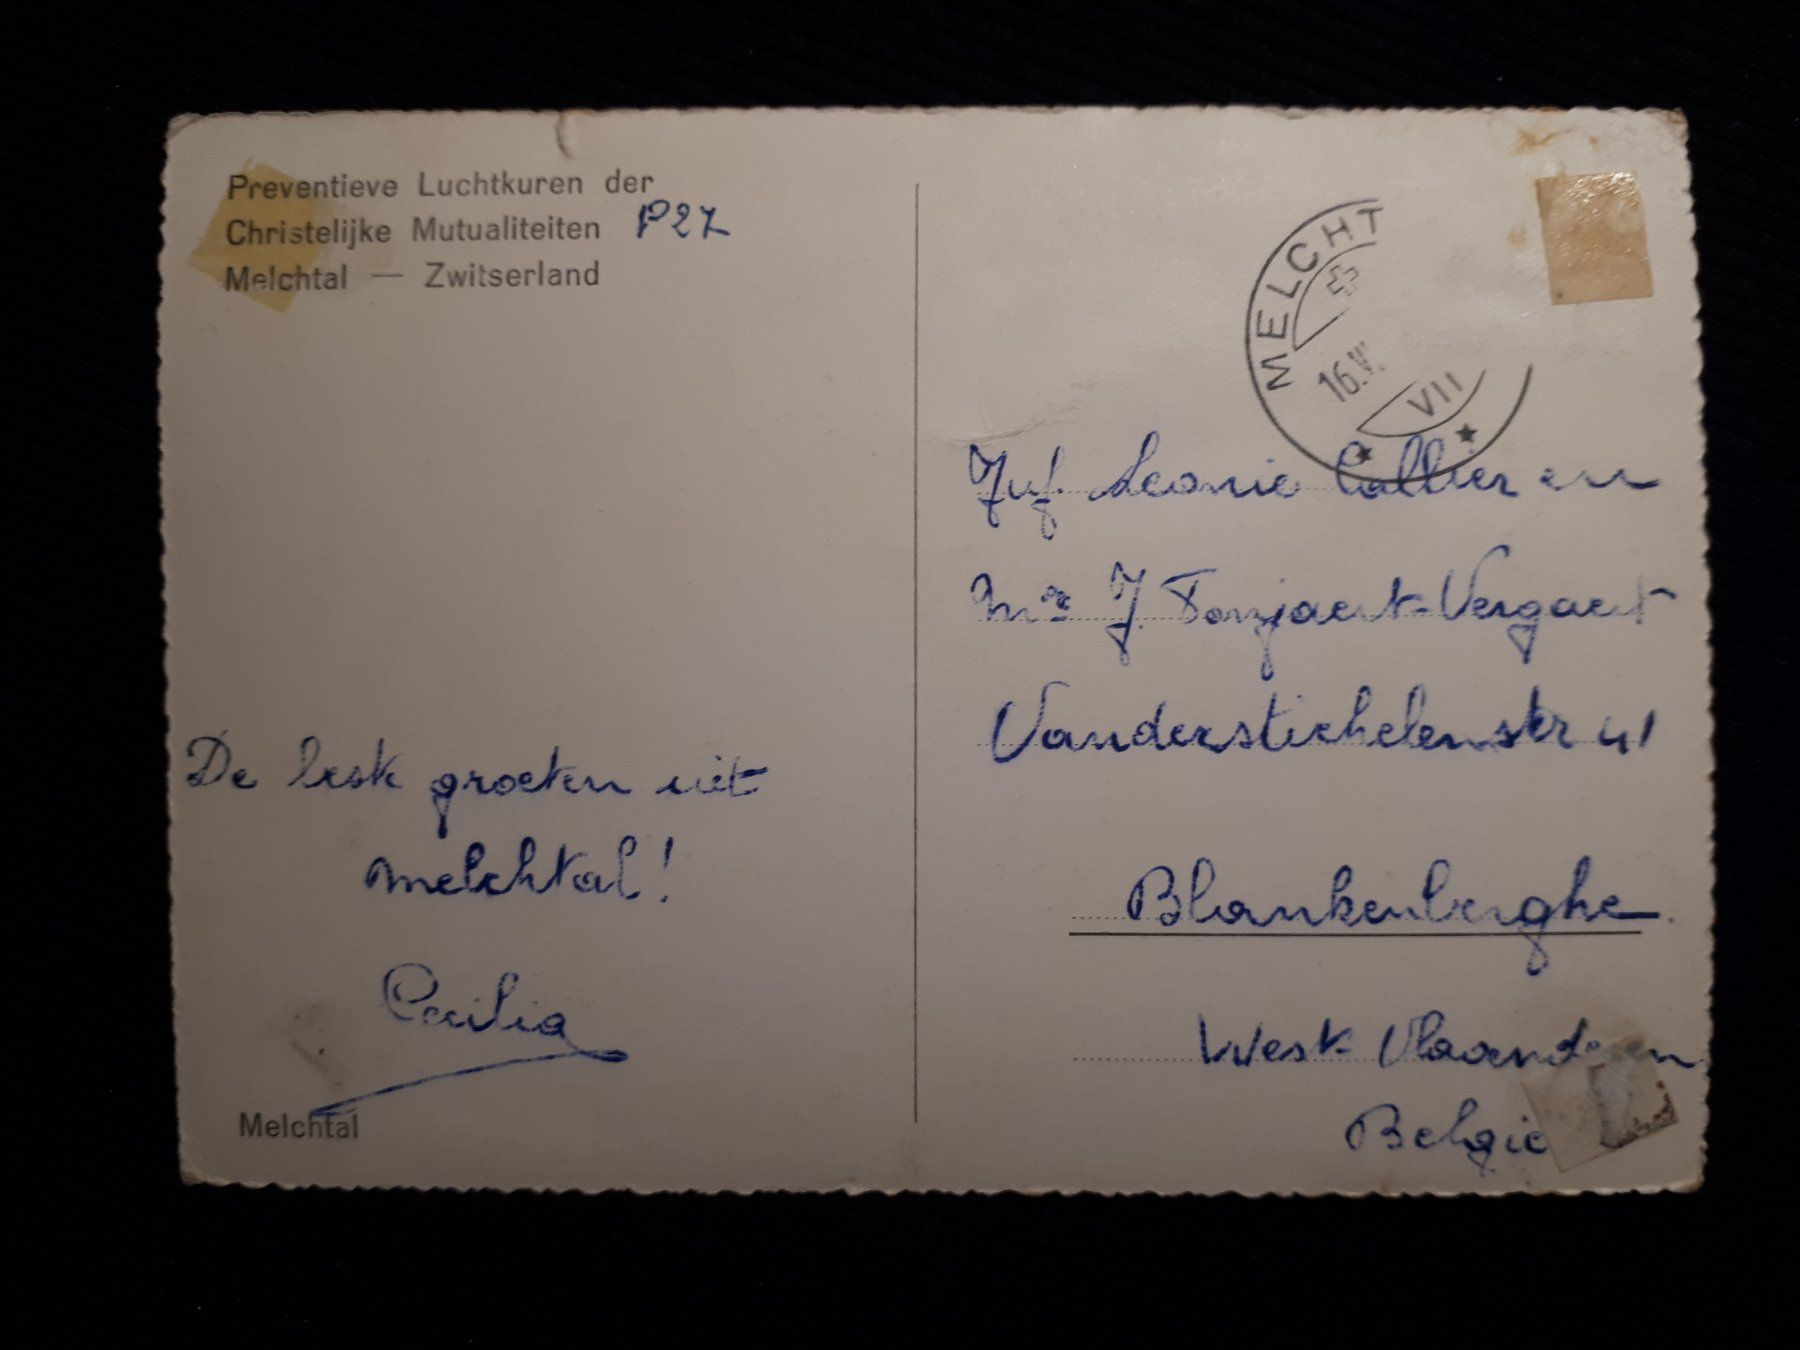 Preventieve Luchtkuren der
Christelijke Mutualiteiten P27
Melchtal — Zwitserland
MELCHT
16.V
VII
Juf. Leonie Callier en
J. Tonjaert-Vergaert
Vanderstichelenstr 41
Blankenberghe.
West-Vlaanderen
België
De best groeten uit
melchtal!
Cecilia
Melchtal